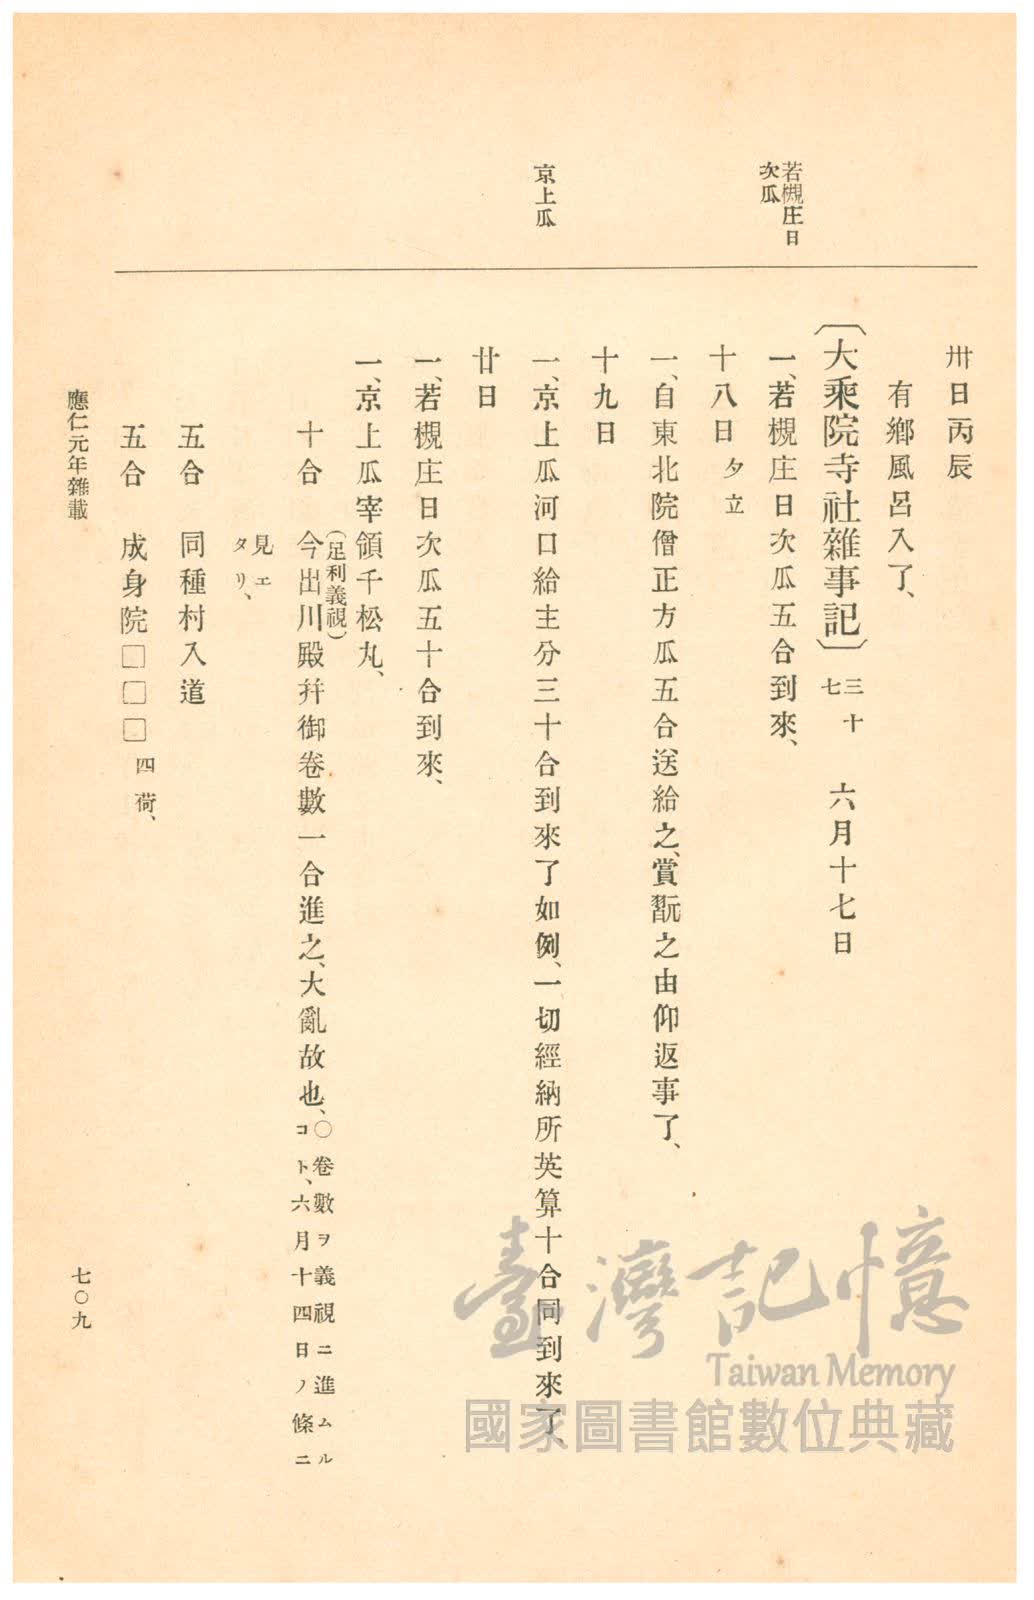 若槻庄日
次瓜
京上瓜
卅日丙辰
有鄕風呂入了、
〔大乘院寺社雜事記〕三十七 六月十七日
一、若槻庄日次瓜五合到來、
十八日夕立
一、自東北院僧正方瓜五合送給之、賞翫之由仰返事了、
十九日
一、京上瓜河口給主分三十合到來了如例、一切經納所英算十合同到來了、
廿日
一、若槻庄日次瓜五十合到來、
一、京上瓜宰領千松丸、
(足利義視)
十合 今出川殿幷御卷數一合進之、大亂故也、○卷數ヲ義視ニ進ムル
コト、六月十四日ノ條ニ
見エ
タリ、
五合 同種村入道
五合 成身院□□□四荷、
應仁元年雜載
七〇九
臺灣記憶
Taiwan Memory
國家圖書館數位典藏